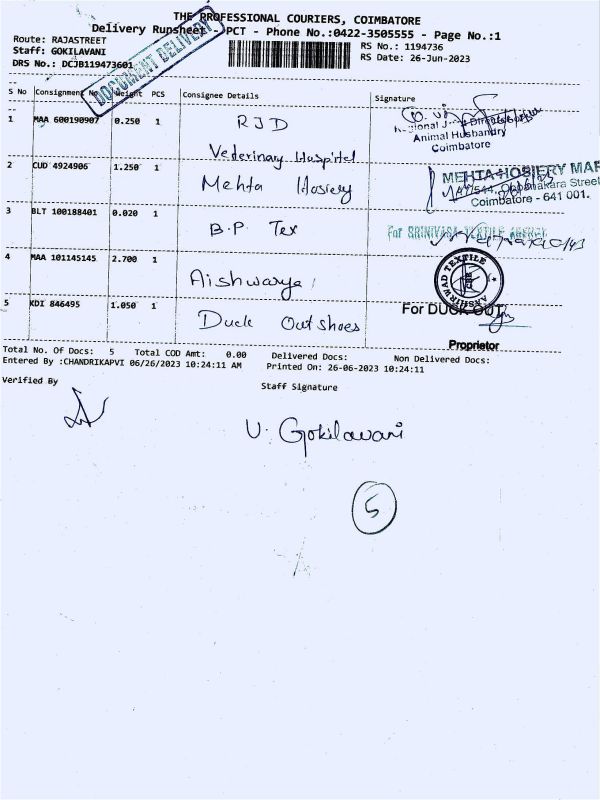 THE PROFESSIONAL COURIERS, COIMBATORE
Delivery Runsheet - PCT - Phone No.:0422-3505555 - Page No.:1
Route: RAJASTREET
Staff: GOKILAVANI
DRS No.: DCJB119473601
RS No.: 1194736
RS Date: 26-Jun-2023
DOCUMENT DELIVERY
S No Consignment No Weight PCS Consignee Details Signature
1 MAA 600190907 0.250 1 RJD
Vederinary Hospital
Regional Joint Director
Animal Husbandry
Coimbatore
2 CUD 4924906 1.250 1 Mehta Hosiery
MEHTA HOSIERY MAR
544, Oppanakara Street
Coimbatore - 641 001.
3 BLT 100188401 0.020 1 B.P. Tex
For SRINIVASA TEXTILE AGENCY
4 MAA 101145145 2.700 1 Aishwarya
TEXTILE
5 KDI 846495 1.050 1 Duck Out shoes
For DUCK OUT
Proprietor
Total No. Of Docs: 5 Total COD Amt: 0.00 Delivered Docs: Non Delivered Docs:
Entered By :CHANDRIKAPVI 06/26/2023 10:24:11 AM Printed On: 26-06-2023 10:24:11
Verified By Staff Signature
V. Gokilavani
5